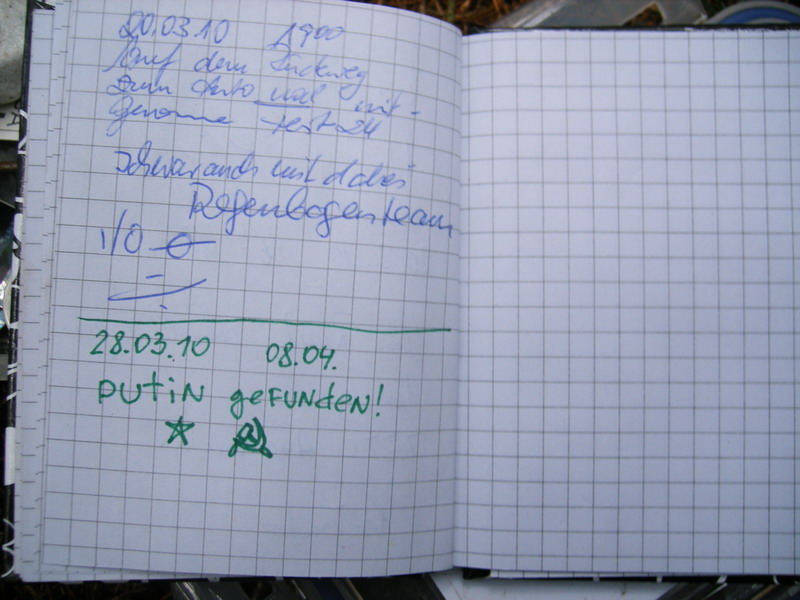 20.03.10 1900
Auf dem Rückweg
zum Auto mal mit-
genommen
Ich war auch mit dabei
Regenbogenteam
I/O
28.03.10 08.04.
PUTIN GEFUNDEN!